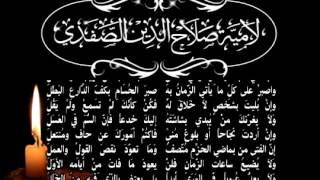 لامية صلاح الدين الصفدي
واصبر على كل ما يأتي الزمان به صبر الحسام بكف الدارع البطل
وإن بليت بشخص لا خلاق له فكن كأنك لم تسمع ولم يقل
ولا يغرنك من يبدي بشاشته إليك خدعا فإن السم في العسل
وإن أردت نجاحا أو بلوغ منى فاكتم أمورك عن حاف ومنتعل
إن الفتى من بماضي الحزم متصف وما تعود نقص القول والعمل
ولا يضيع ساعات الزمان فلن يعود ما فات من أيامه الأول